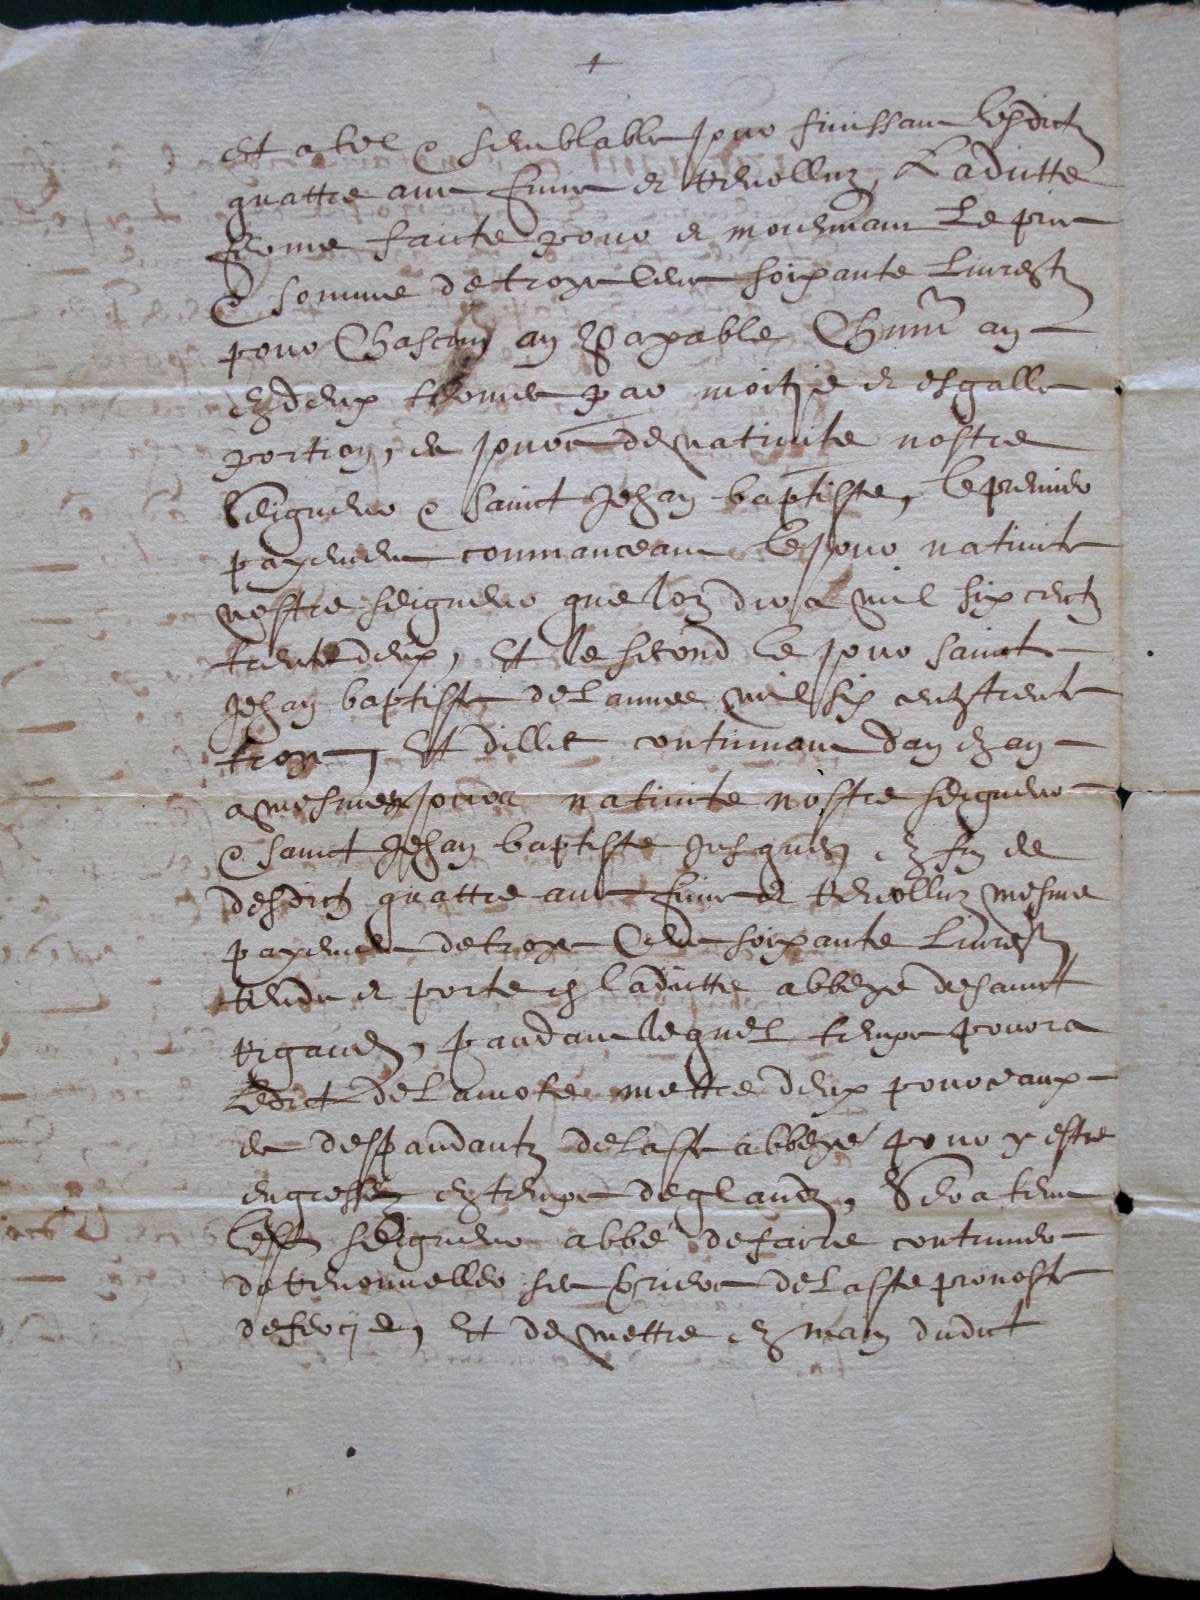 et a tel & semblable jour finissant lesdictz
quattre ans finis et revolluz, Ladicte
ferme faicte pour et moiennant le pris
& somme de troys cens soixante livres tz
pour Chascun an payable Chun an
en deux termes par moityé et esgalle
portion, es jours de nativite nostre
seigneur & sainct Jehan baptiste, le premier
payement commanceant le jour nativite
nostre seigneur que lon dira mil six centz
trente deux, Et le second le jour sainct
Jehan baptiste de lannee mil six centz trente
troys, Et dillec continuant dan en an
a mesmes jours nativite nostre seigneur
& sainct Jehan baptiste jusques en fin de
desdictz quattre ans finis et revolluz mesme
payement de troys Cens soixante livres tz
rendu et porte en ladicte abbeye de sainct
rigaud, pandant lequel temps pourra
ledict de Lamote mettre deux pourceaux
es despandantz de lad abbeye pour y estre
engressez en temps de glandz, Sera tenu
led seigneur abbé de faire continuer
de renouveller les terriers de lad prevoste
de , Et de mettre en main dudict